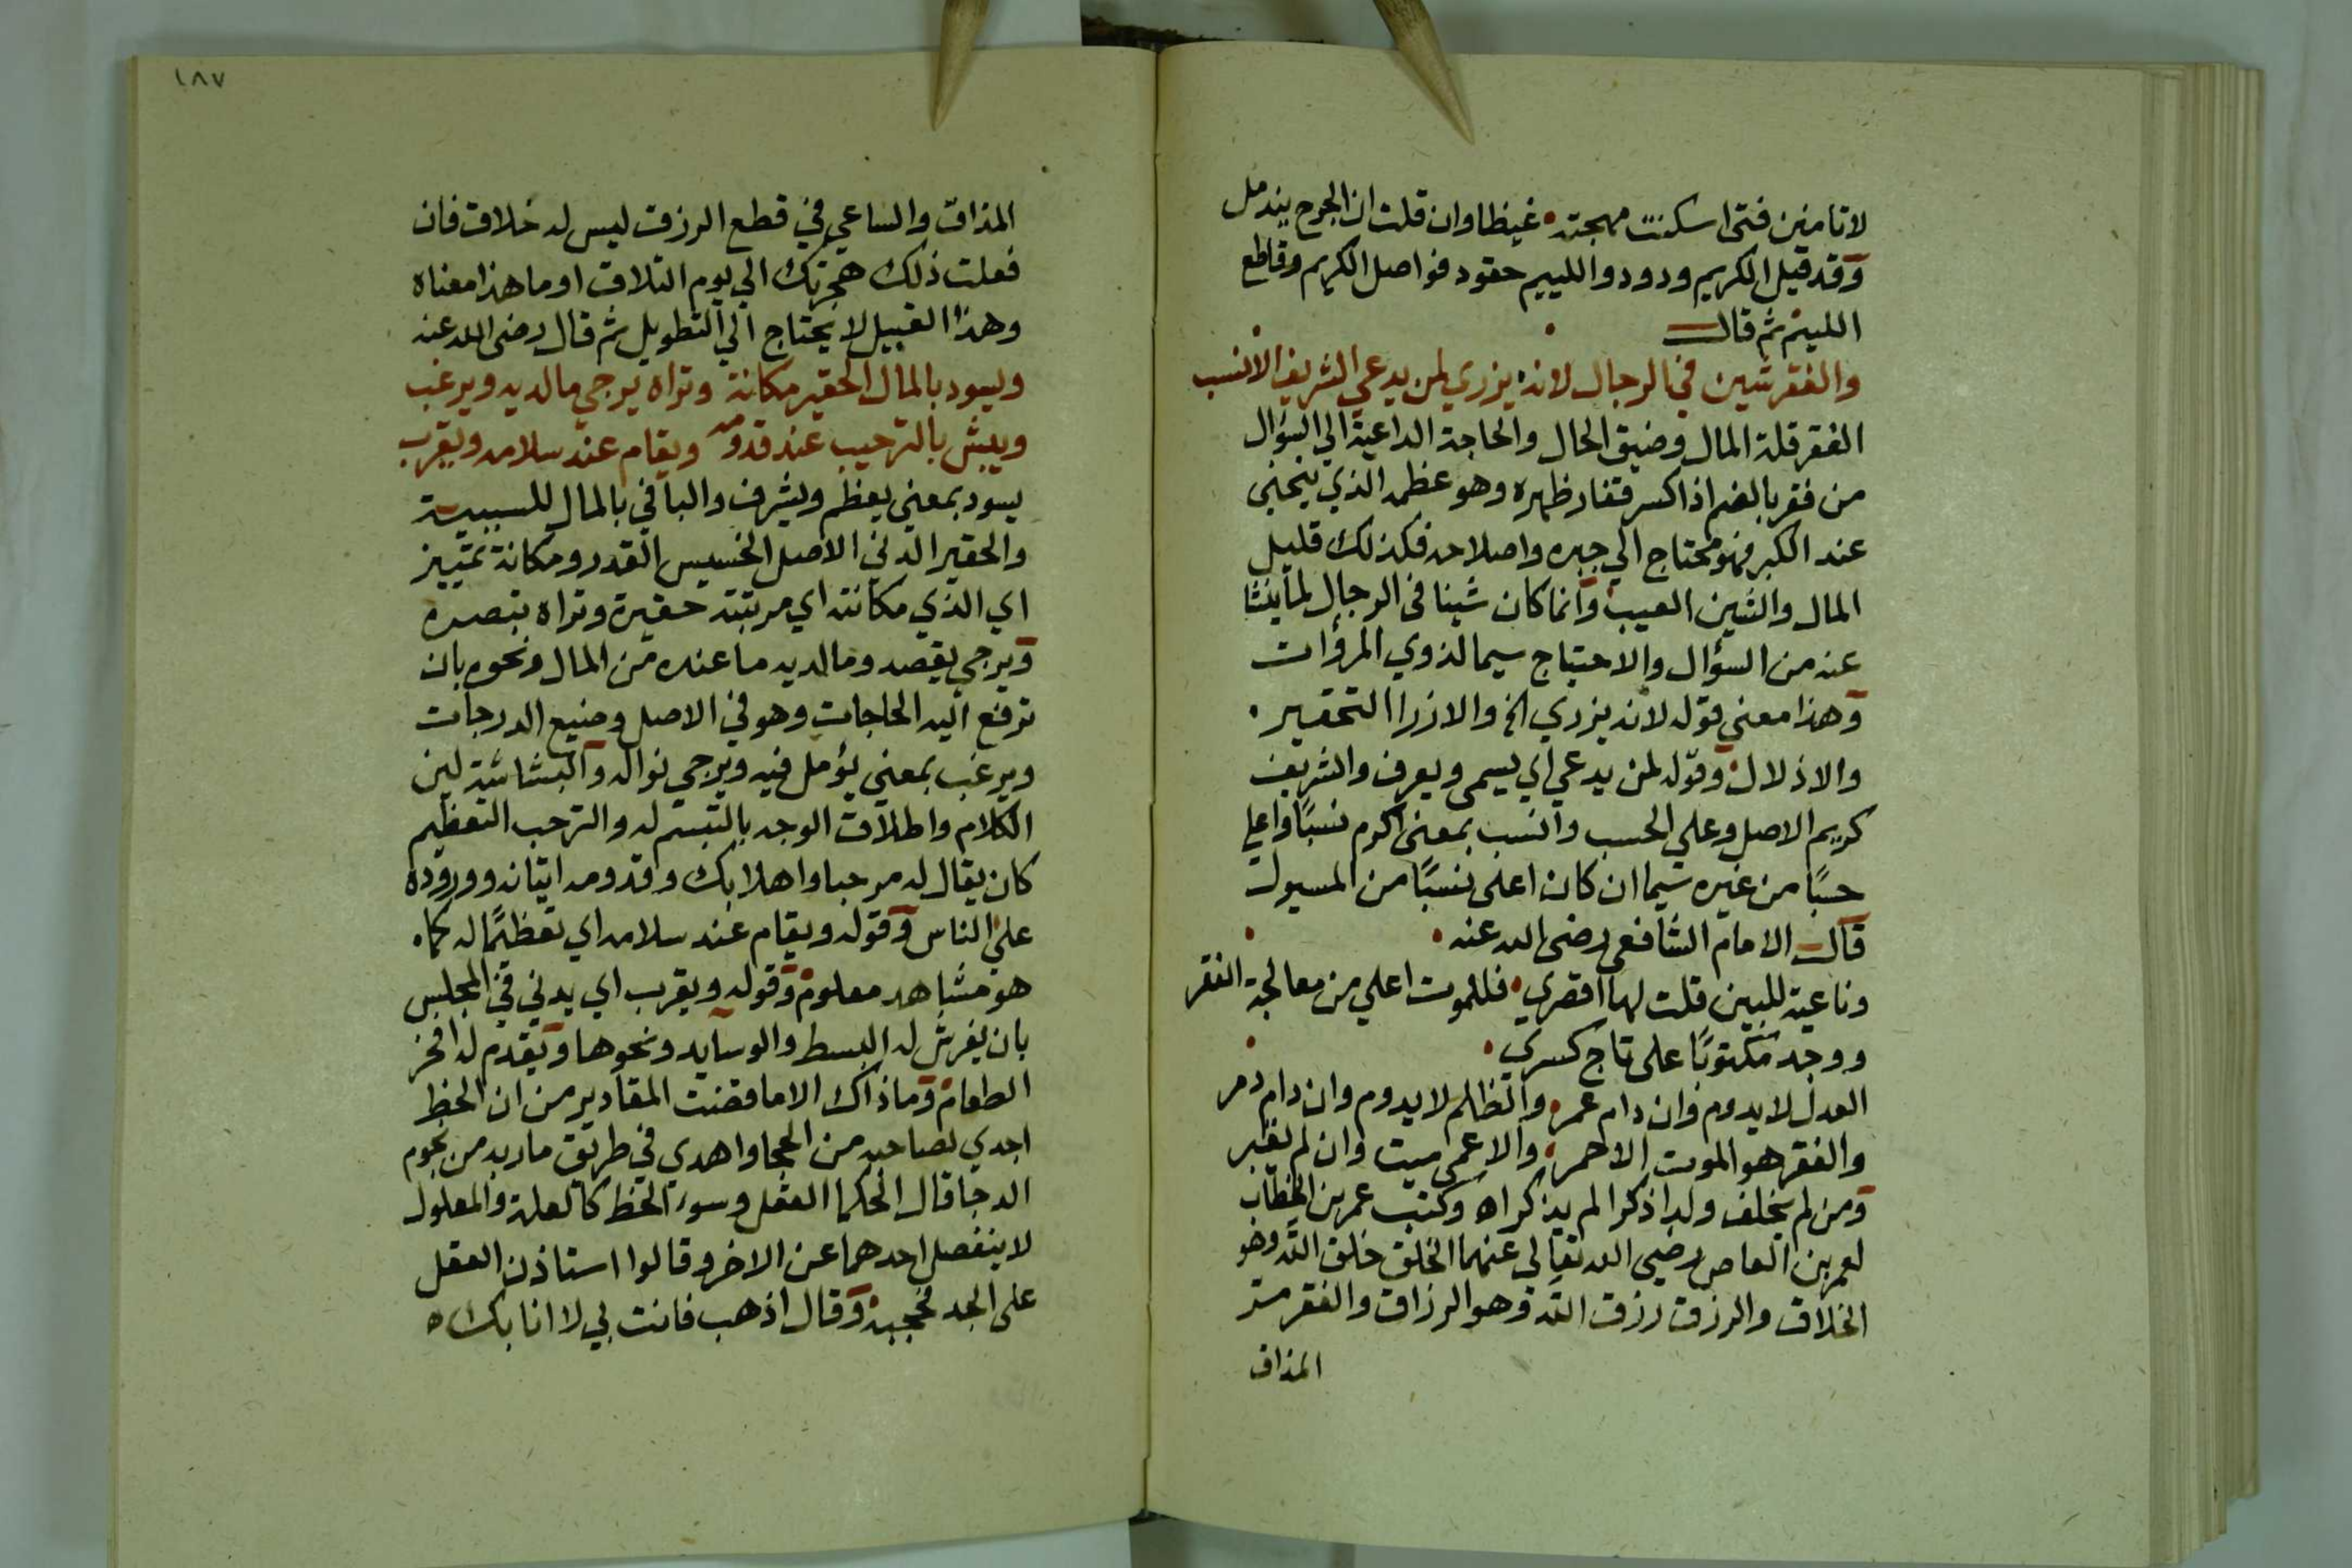 لا تامنين فتى اسكنت مهجته • غيظا وان قلت ان الجرح يندمل
وقد قيل الكريم ودود واللييم حقود فواصل الكريم وقاطع
اللييم ثم قال
والفقر شين في الرجال لانه • يزري لمن يدعي الشريف الانسب
الفقر قلة المال وضيق الحال والحاجة الداعية الي السؤال
من فقر بالضم اذا كسر فقار ظهره وهو عظمه الذي ينحني
عند الكبر فهو محتاج الي جبره واصلاحه فكذلك قليل
المال والشين العيب وانما كان شينا في الرجال لما ينشا
عنه من السؤال والاحتياج سيما لذوي المروٴات
وهذا معني قوله لانه يزري الخ والازرا التحقير •
والاذلال • وقوله لمن يدعي اي يسمى ويعرف والشريف
كريم الاصل وعلي الحسب وانسب بمعني اكرم نسبًا واعلي
حسبًا من غيره سيما ان كان اعلى نسبًا من المسيول
قال الامام الشافعي رضى الله عنه •
وناعية للبين قلت لها اقصري • فللموت اعلي من معالجة الفقر
ووجد مكتوبًا على تاج كسري •
العدل لا يدوم وان دام عمر • والظالم لا يدوم وان دام دمر
والفقر هو الموت الاحمر • والاعمى ميت وان لم يقبر
ومن لم يخلف ولدا ذكرا لم يذكر اه وكتب عمر بن الخطاب
لعمر بن العاص رضي الله تعالي عنهما الخلق خلق الله وهو
الخلاق والرزق رزق الله وهو الرزاق والفقر مر
المذاق
١٨٧
المذاق والساعي في قطع الرزق ليس له خلاق فان
فعلت ذلك هجرتك الي يوم التلاق او ما هذا معناه
وهذا القبيل لا يحتاج الي التطويل ثم قال رضى الله عنه
ويسود بالمال الحقير مكانة وتراه يرجي ما لديه ويرغب
ويبش بالترحيب عند قدومه ويقام عند سلامه ويقرب
يسود بمعني يعظم ويشرف والبا في بالمال للسببية
والحقير الدني الاصل الخسيس القدر ومكانة تمييز
اي الذي مكانته اي مرتبته حقيرة وتراه تبصره
ويرجي يقصد وما لديه ما عنده من المال ونحوه بان
ترفع اليه الحاجات وهو في الاصل وضيع الدرجات
ويرغب بمعني يؤمل فيه ويرجي نواله والبشاشة لين
الكلام واطلاق الوجه بالتبسم له والترحب التعظيم
كان يقال له مرحبا واهلا بك وقدومه اتيانه ووروده
على الناس وقوله ويقام عند سلامه اي تعظيمًا له كما •
هو مشاهد معلوم • وقوله ويقرب اي يدني في المجلس
بان يفرش له البسط والوسايد ونحوها ويقدم له افخر
الطعام • وما ذاك الا ما قضت المقادير من ان الحظ
اجدي لصاحبه من الحجا واهدي في طريق ماربه من نجوم
الدجا قال الحكما العقل وسوء الحظ كالعلة والمعلول
لا ينفصل احدهما عن الاخر وقالوا استاذن العقل
على الجد فحجبه • وقال اذهب فانت بي لا انا بك اه